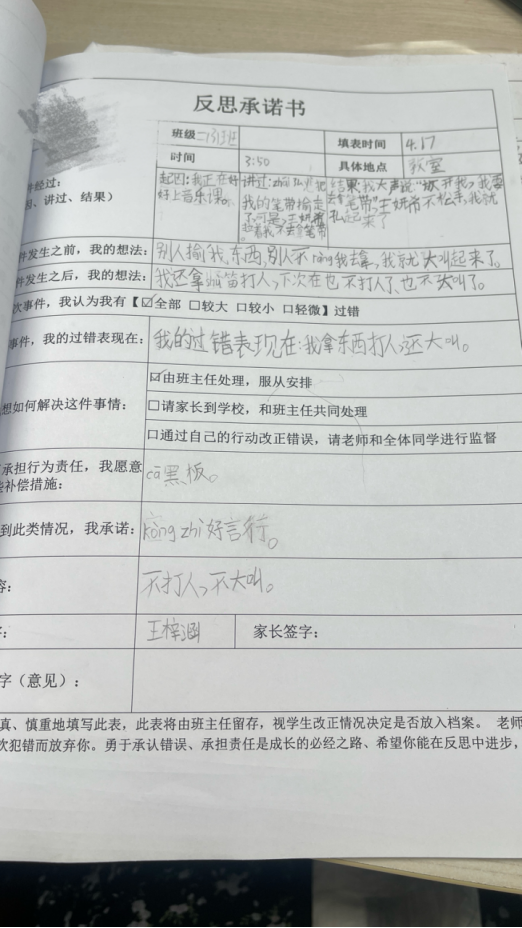 反思承诺书
班级 二13班 填表时间 4.17
时间 3:50 具体地点 教室
件经过:
因、讲过、结果)
起因:我正在好好上音乐课。
讲过:
我的笔带
结果:我大声说"放开我,我要去拿笔带"王妍希不松手,我就
起来了
件发生之前,我的想法: 别人抢我东西,别人不ràng我去拿,我就大叫起来了。
件发生之后,我的想法: 我还拿 笛打人,下次在也不打人了、也不大叫了。
次事件,我认为我有【☑全部 □较大 □较小 □轻微】过错
事件,我的过错表现在: 我的过错表现在:我拿东西打人,还大叫。
想如何解决这件事情:
☑由班主任处理,服从安排
□请家长到学校,和班主任共同处理
□通过自己的行动改正错误,请老师和全体同学进行监督
承担行为责任,我愿意
补偿措施:
cā黑板。
到此类情况,我承诺: kòng zhì好言行。
容: 不打人,不大叫。
王梓涵 家长签字:
字(意见):
真、慎重地填写此表,此表将由班主任留存,视学生改正情况决定是否放入档案。 老师
次犯错而放弃你。勇于承认错误、承担责任是成长的必经之路、希望你能在反思中进步,